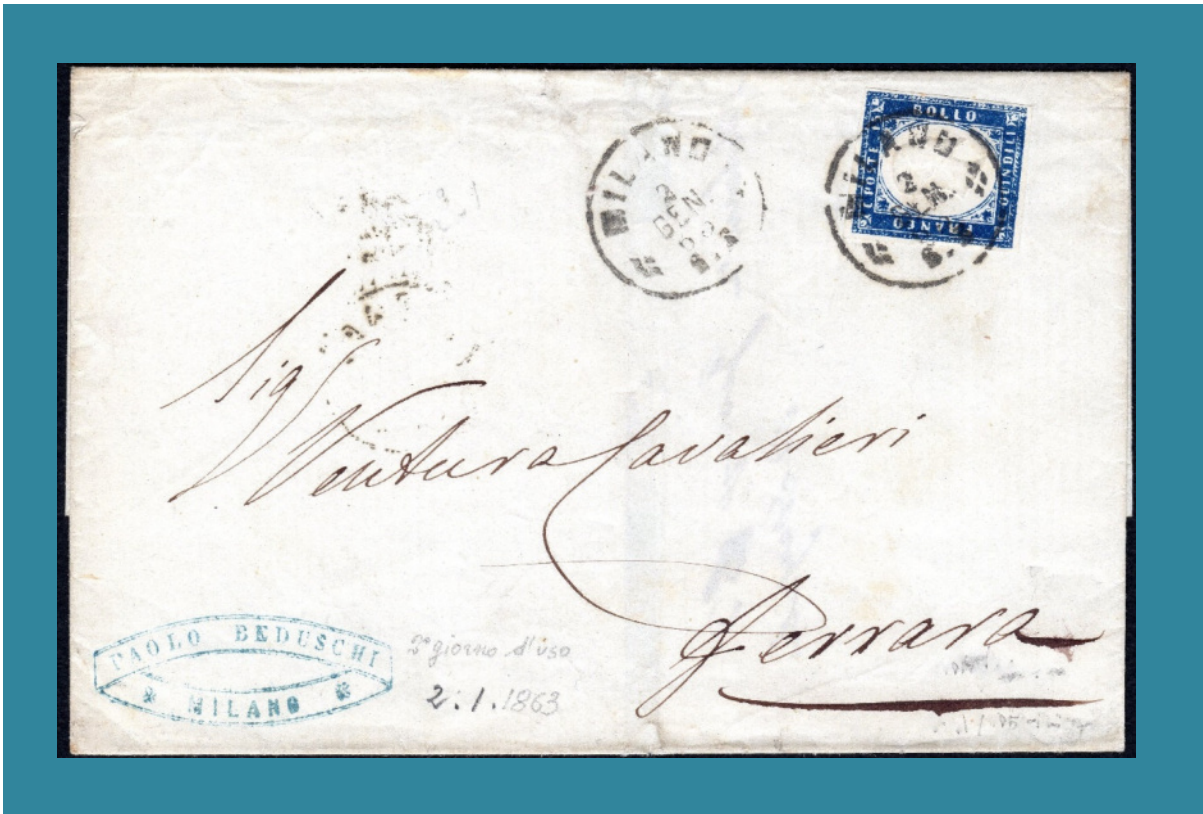 BOLLO
C. POSTE 15
C. QUINDICI
FRANCO
MILANO
2
GEN.
63
MILANO
2
GEN.
63
Sig.
Ventura Cavalieri
Ferrara
PAOLO BEDUSCHI
MILANO
2° giorno d'uso
2.1.1863